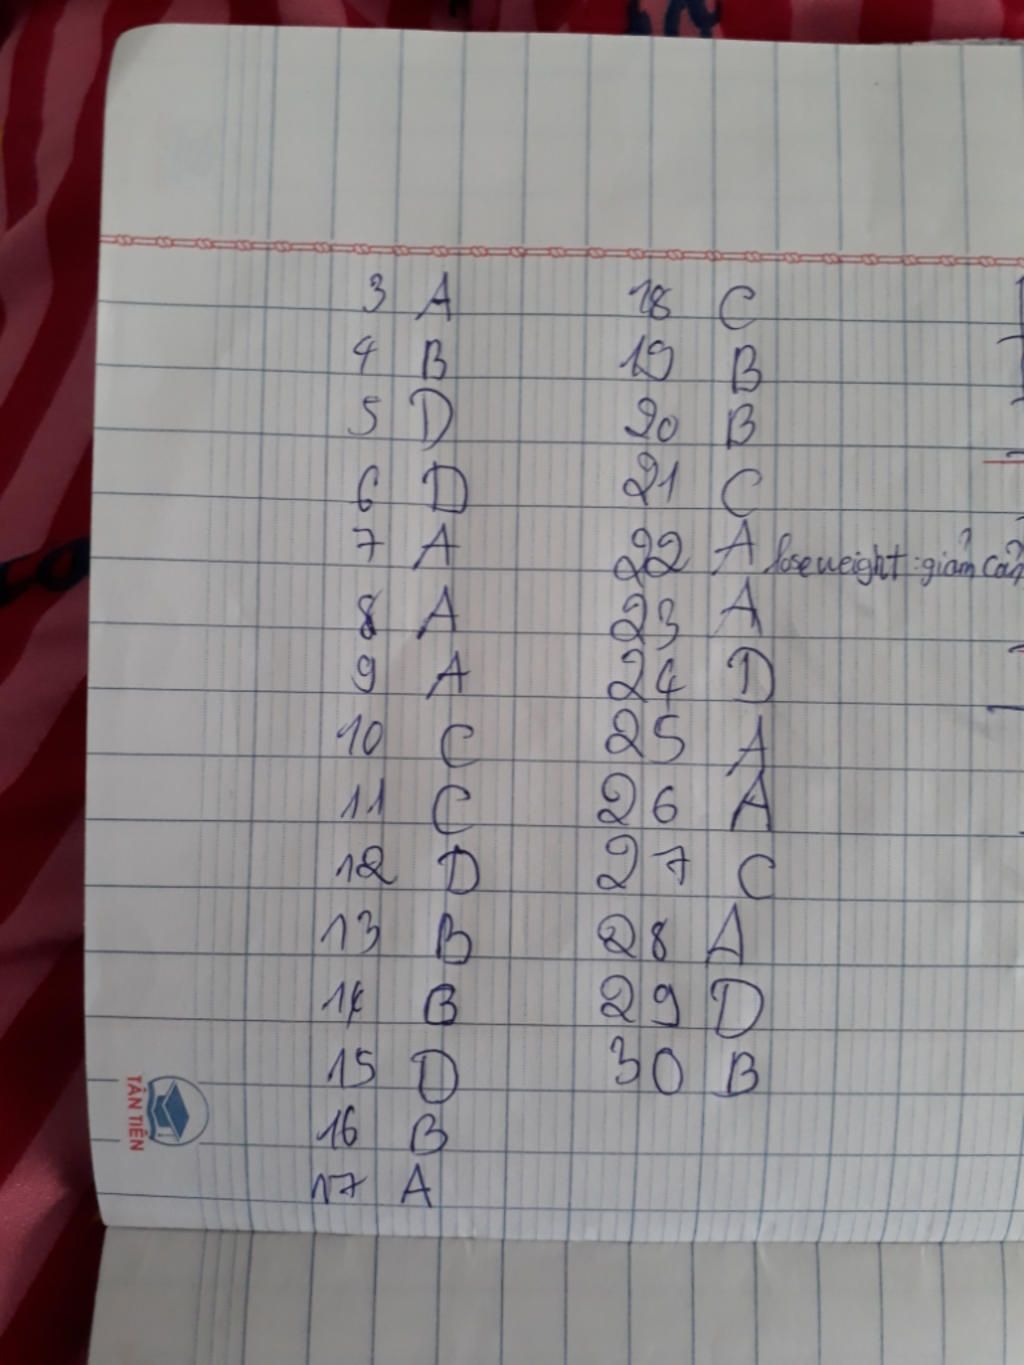 3 A
4 B
5 D
6 D
7 A
8 A
9 A
10 C
11 C
12 D
13 B
14 B
15 D
16 B
17 A
18 C
19 B
20 B
21 C
22 A lose weight : giảm cân
23 A
24 D
25 A
26 A
27 C
28 A
29 D
30 B
TÂN TIẾN